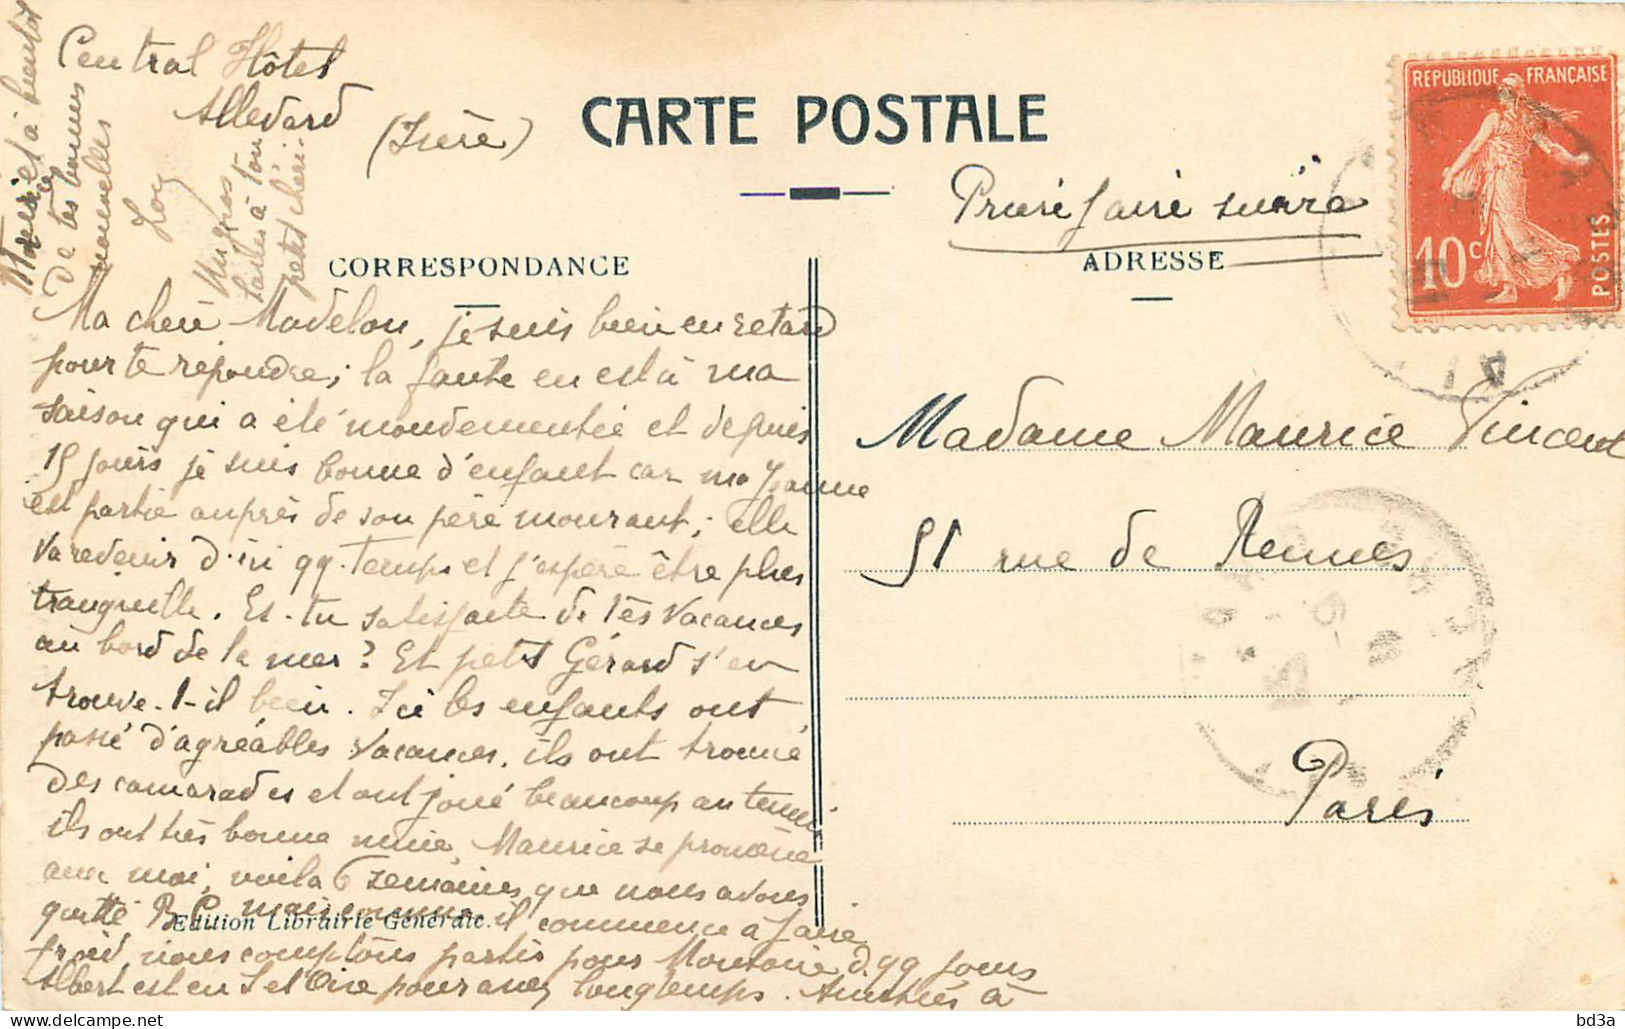 Central Hôtel
Allevard
(Isère)
CARTE POSTALE
Prière faire suivre
REPUBLIQUE FRANÇAISE
10c
POSTES
CORRESPONDANCE
ADRESSE
Ma chère Madelon, je suis bien en retard
pour te répondre; la faute en est à ma
saison qui a été mouvementée et depuis
15 jours je suis bonne d'enfant car ma Jeanne
est partie auprès de son père mourant; elle
va revenir d'ici qq. temps et j'espère être plus
tranquille. Es-tu satisfaite de tes vacances
au bord de la mer? Et petit Gérard s'en
trouve-t-il bien. Ici les enfants ont
passé d'agréables vacances, ils ont trouvé
des camarades et ont joué beaucoup au tennis
ils ont très bonne mine, Maurice se promène
avec moi, voilà 6 semaines que nous avons
quitté B.C. mais comme il commence à faire
froid, nous comptons partir pour Montoire d. qq jours
Albert est en S et Oise pour assez longtemps. Amitiés à
Maurice et à bientôt
de tes bonnes
nouvelles
Un gros
baiser à ton
petit chéri.
Edition Librairie Générale.
Madame Maurice Vincent
51 rue de Rennes
Paris
bd3a